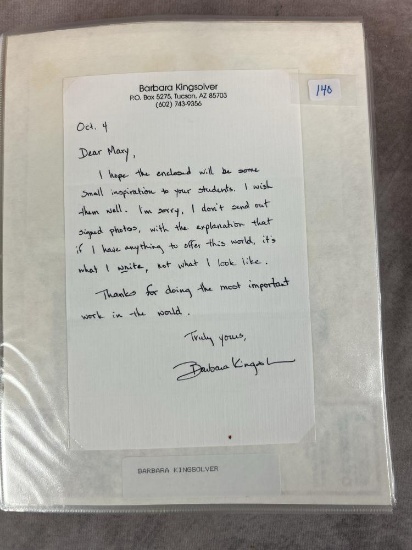 Barbara Kingsolver
P.O. Box 5275, Tucson, AZ 85703
(602) 743-9356
140
Oct. 4
Dear Mary,
I hope the enclosed will be some
small inspiration to your students. I wish
them well. I'm sorry, I don't send out
signed photos, with the explanation that
if I have anything to offer this world, it's
what I write, not what I look like.
Thanks for doing the most important
work in the world.
Truly yours,
Barbara Kingsolver
BARBARA KINGSOLVER